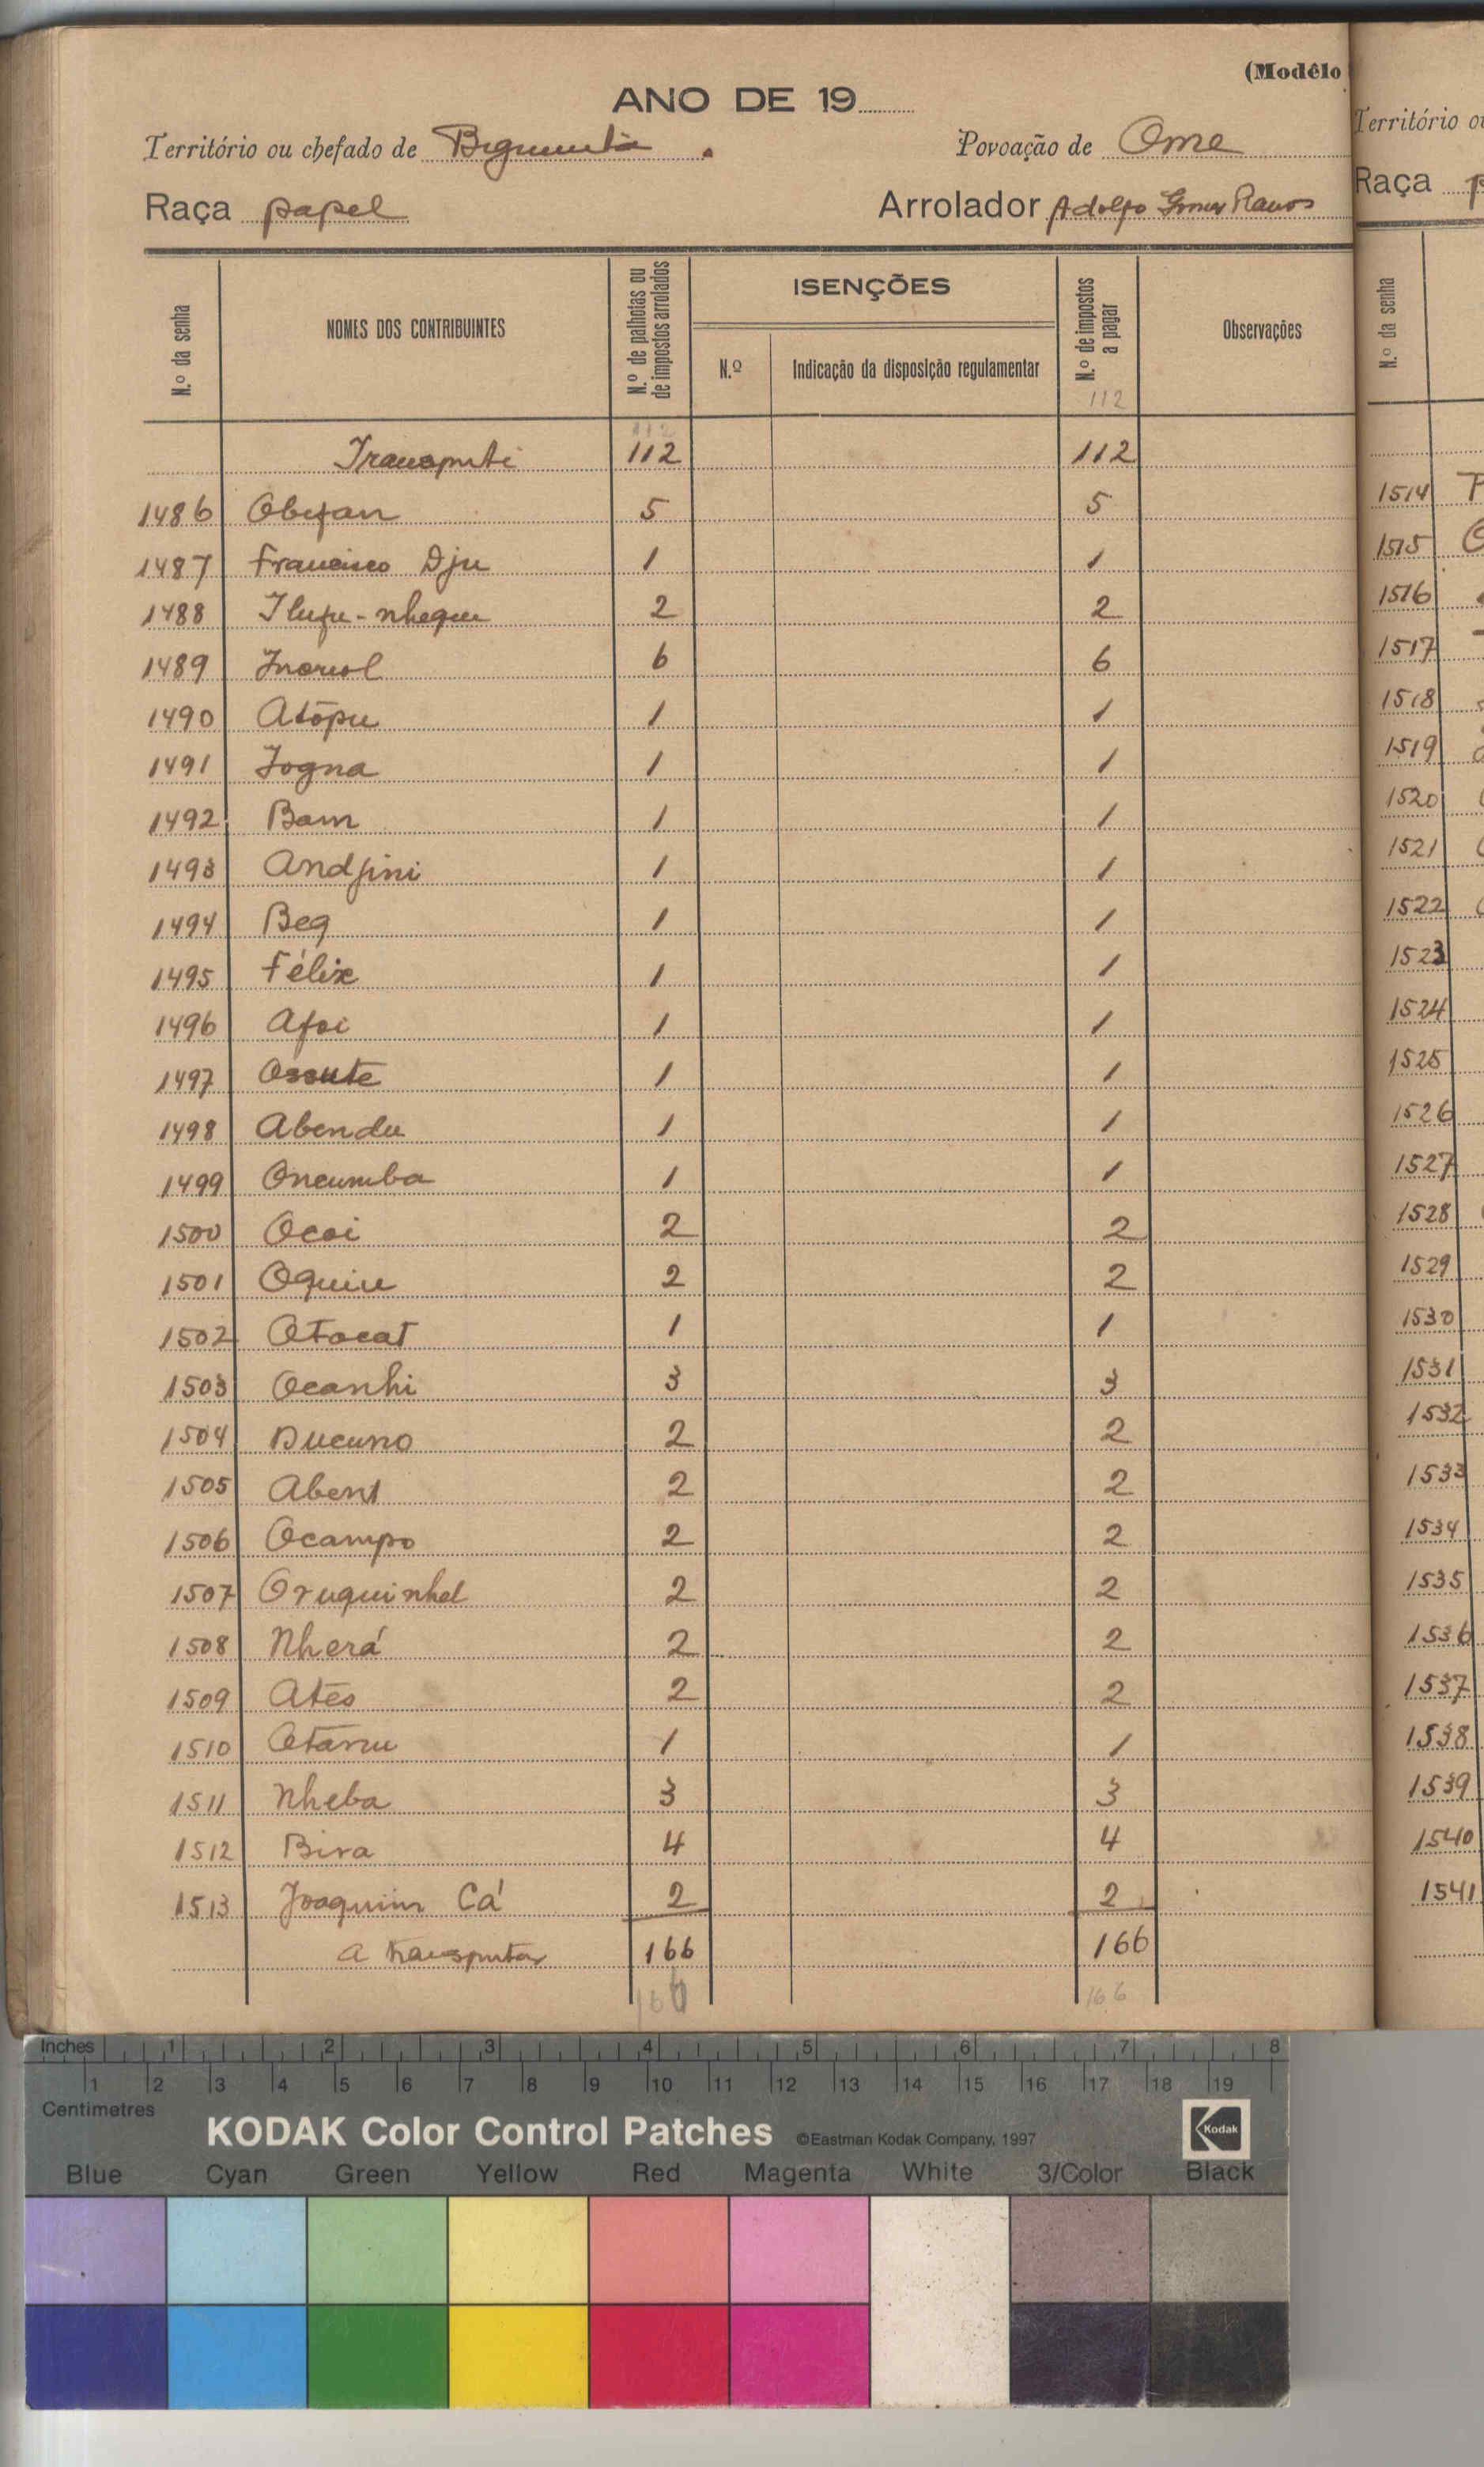 (Modêlo
ANO DE 19
Território ou chefado de Povoação de Ome
Raça papel Arrolador Adolfo Gomes Ramos
N.º da senha NOMES DOS CONTRIBUINTES N.º de palhotas ou de impostos arrolados ISENÇÕES N.º Indicação da disposição regulamentar N.º de impostos a pagar Observações
112
112
Transporte 112 112
1486 5 5
1487 Francisco Dju 1 1
1488 2 2
1489 6 6
1490 Atôpu 1 1
1491 Jogna 1 1
1492 Bam 1 1
1493 Andjini 1 1
1494 Beq 1 1
1495 Félix 1 1
1496 Afoi 1 1
1497 Ossute 1 1
1498 Abendu 1 1
1499 Oncumba 1 1
1500 Ocoi 2 2
1501 Oquiu 2 2
1502 Otocat 1 1
1503 Ocanhi 3 3
1504 Ducuno 2 2
1505 Abent 2 2
1506 Ocampo 2 2
1507 Oruquinhel 2 2
1508 Nherá 2 2
1509 Atés 2 2
1510 1 1
1511 Nheba 3 3
1512 Bira 4 4
1513 Joaquim Cá 2 2
a transportar 166 166
166 166
Território ou
Raça p
N.º da senha
1514
1515
1516
1517
1518
1519
1520
1521
1522
1523
1524
1525
1526
1527
1528
1529
1530
1531
1532
1533
1534
1535
1536
1537
1538
1539
1540
1541
Inches 1 2 3 4 5 6 7 8
1 2 3 4 5 6 7 8 9 10 11 12 13 14 15 16 17 18 19
Centimetres
KODAK Color Control Patches ©Eastman Kodak Company, 1997 Kodak
Blue Cyan Green Yellow Red Magenta White 3/Color Black